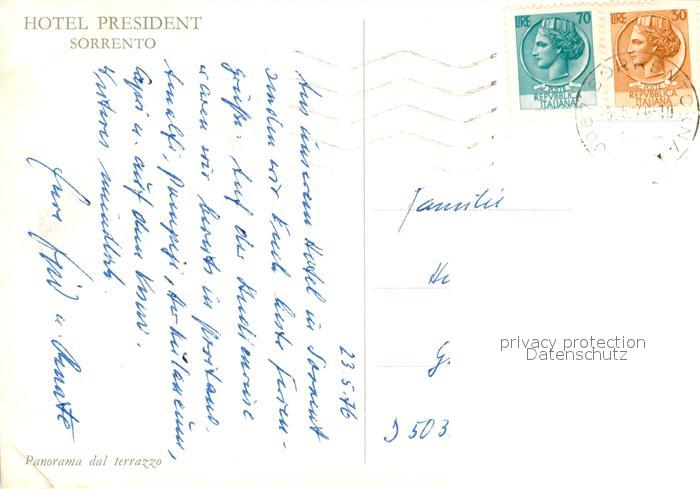 HOTEL PRESIDENT
SORRENTO
23.5.76
Aus unserem Hotel in Sorrent
senden wir Euch beste Ferien-
grüße. Auf der Studienreise
waren wir bereits in Positano,
Amalfi, Pompeji, Herkulaneum,
Capri u. auf dem Vesuv.
Weiteres mündlich.
Eure u. Renate
Panorama dal terrazzo
LIRE 70
POSTE
REPVBBLICA
ITALIANA
LIRE 30
POSTE
REPVBBLICA
ITALIANA
Familie
He
G
D 503
privacy protection
Datenschutz